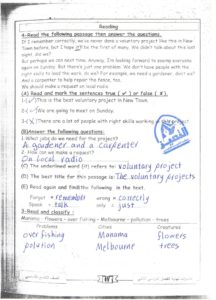 Reading
4-Read the following passage then answer the questions.
If I remember correctly, we've never done a voluntary project like this in New
Town before, but I hope it'll be the first of many. We didn't talk about this last
night, did we?
But perhaps we can next time. Anyway, I'm looking forward to seeing everyone
again on Sunday. But there's just one problem. We don't have people with the
right skills to lead the work, do we? For example, we need a gardener, don't we?
And a carpenter to help repair the fence, too.
We should make a request on local radio.
(A) Read and mark the sentences true ( ✓ ) or false ( X )
1-(✓) This is the best voluntary project in New Town.
2-( ) We are going to meet on Sunday.
3-( ) There are a lot of people with right skills working project
(B)Answer the following questions:
1-What jobs do we need for the project?
A gardener and a carpenter
2- How can we make a request?
On Local radio
(C) The underlined word (it) refers to voluntary project
(D) The best title for this passage is: The voluntary projects
(E) Read again and find the following in the text.
Forget ≠ remember wrong = correctly
Speak = talk only = just
3-Read and classify :
Manama - flowers - over fishing - Melbourne - pollution - trees
Problems Cities Creatures
over fishing Manama flowers
polution Melbourne trees